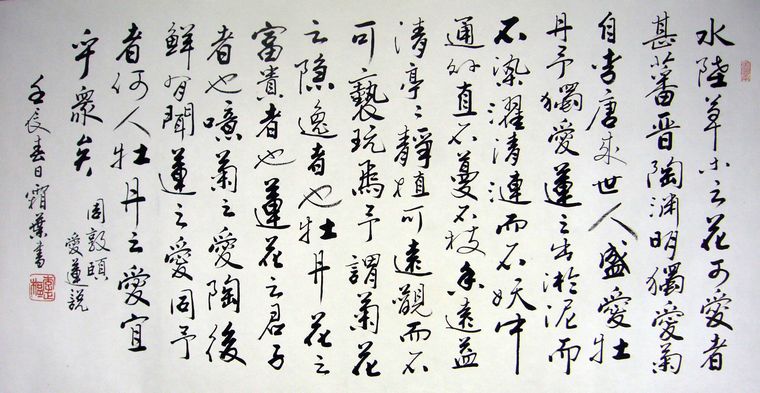 水陸草木之花可愛者
甚蕃晋陶渊明獨愛菊
自李唐来世人盛愛牡
丹予獨愛蓮之出淤泥而
不染濯清漣而不妖中
通外直不蔓不枝香遠益
清亭〻静植可遠觀而不
可褻玩焉予謂菊花
之隐逸者也牡丹花之
富貴者也蓮花之君子
者也噫菊之愛陶後
鮮有聞蓮之愛同予
者何人牡丹之愛宜
乎衆矣
周敦頤
愛蓮説
壬辰春日霜葉書